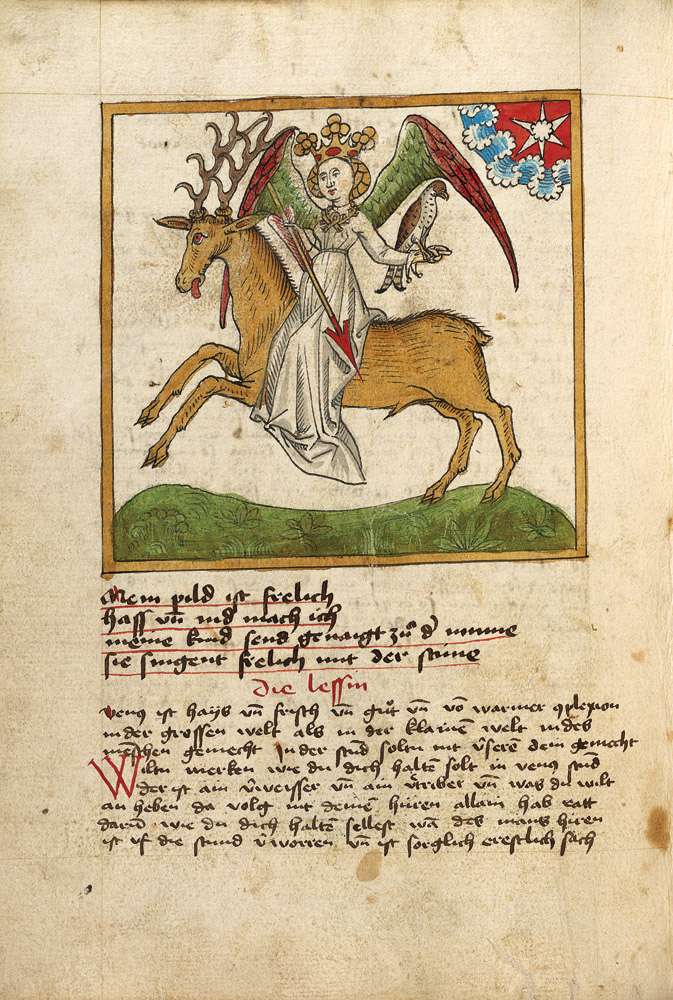 Mein pild ist frelich
hass vn̄ nid mach ich
meine kind send genaigt zuͦ dʼ minne
sie singent frelich mit der stime
die lessin
venus ist hayß vn̄ frisch vn̄ guͦt vn̄ vō warmer ꝯplexion
in der grossen welt als in der klainē welt in des
mēschen gemecht In der stūd soltu mit v̄serē dein gemecht
Wiltu merken wie du dich haltē solt in venus stūd
der ist ain v̄weisser vn̄ ain v̄triber vn̄ was du wilt
an heben da volg mit deinē hüren allain hab ratt
darū wie du dich haltē sellest wā des mans hiren
ist vf die stund v̄worren vn̄ ist sorglich erestlich sach